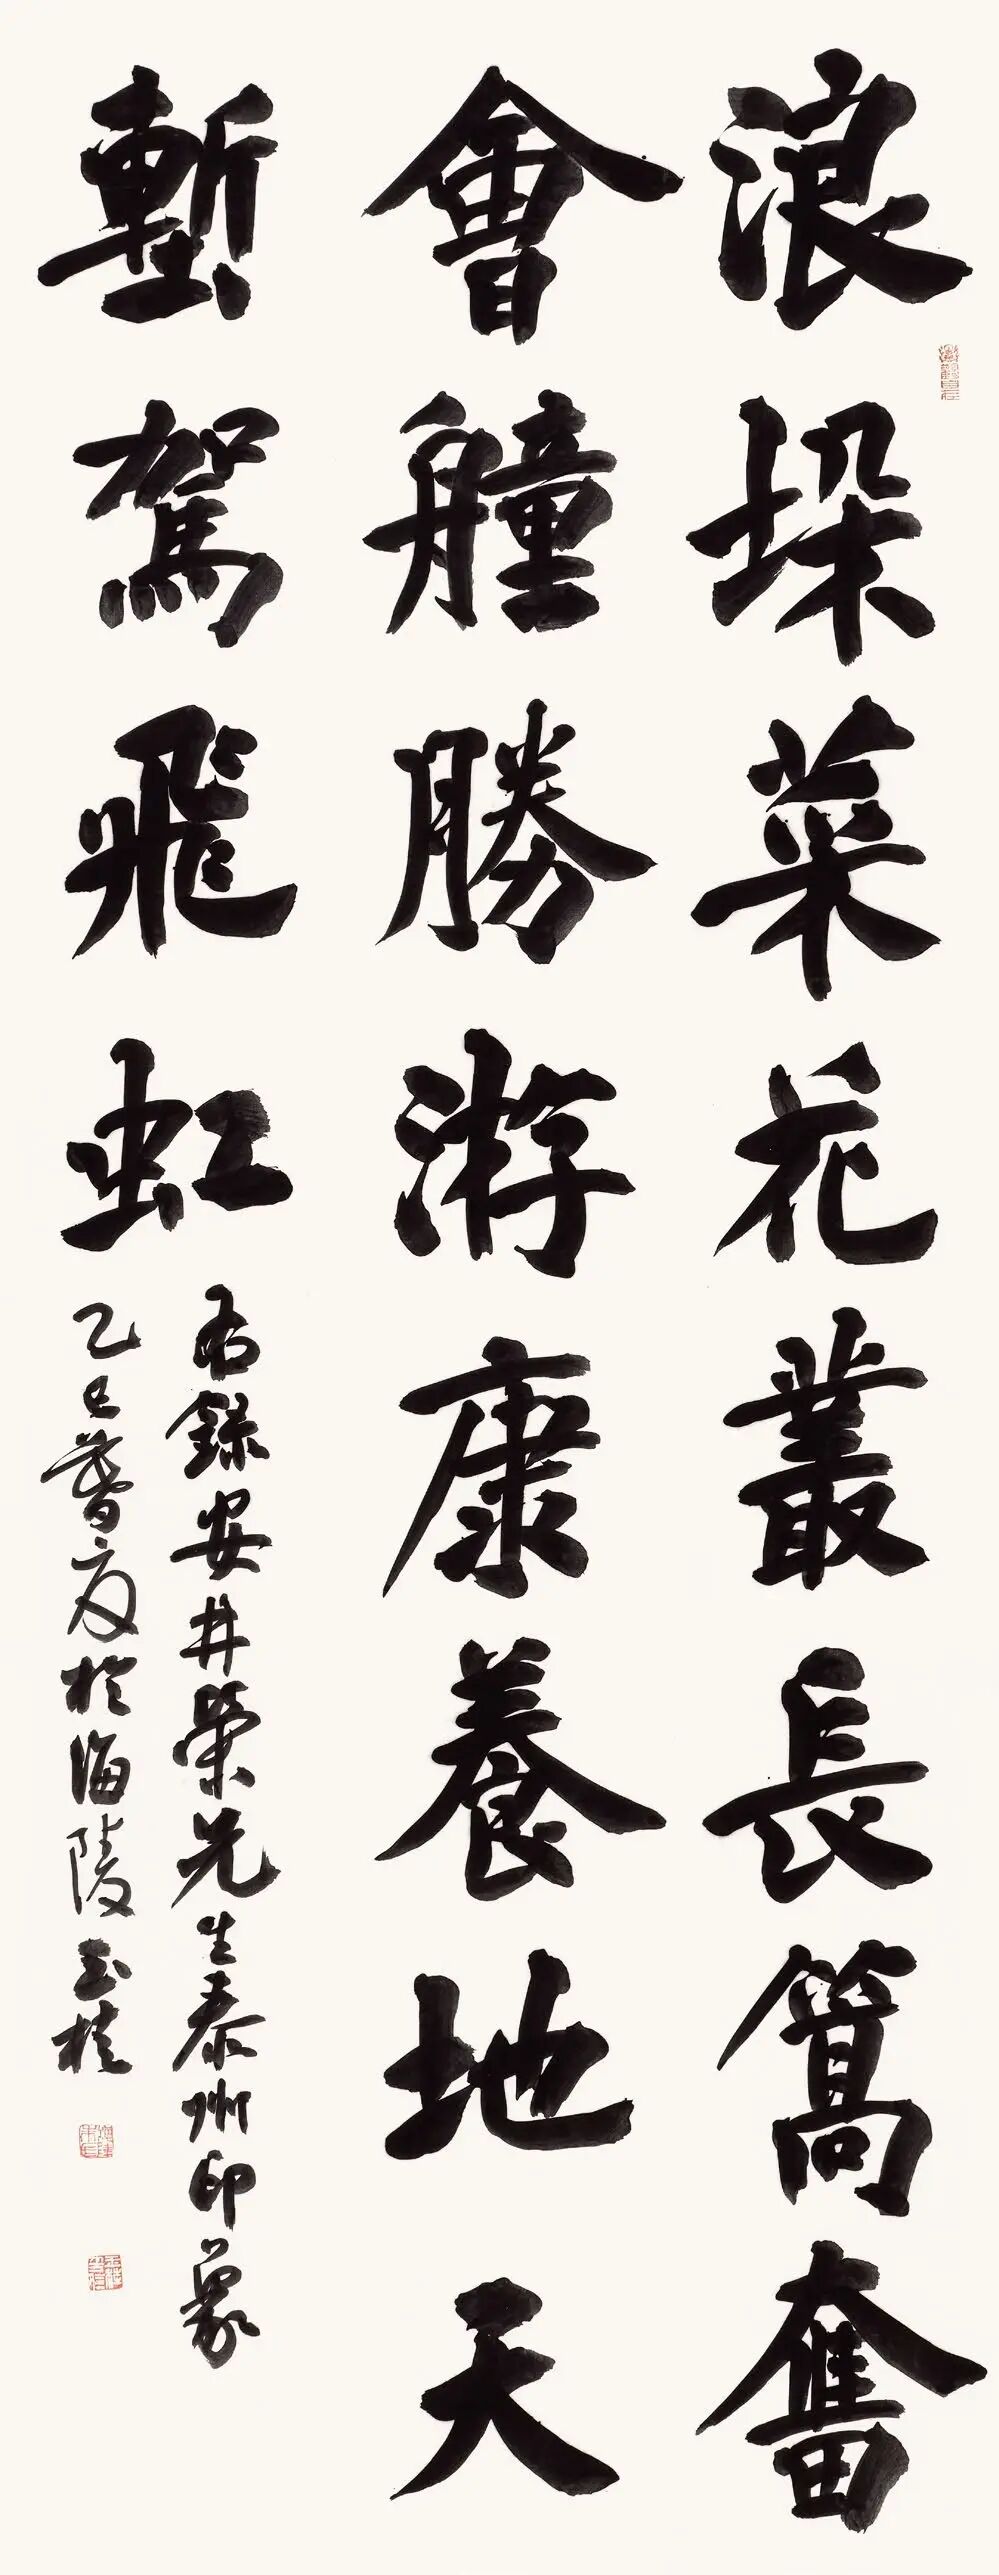 浪垛菜花叢長篙奮
會艟勝游康養地天
塹駕飛虹
右錄安井榮先生泰州印象
乙巳暮夏於海陵玉桂